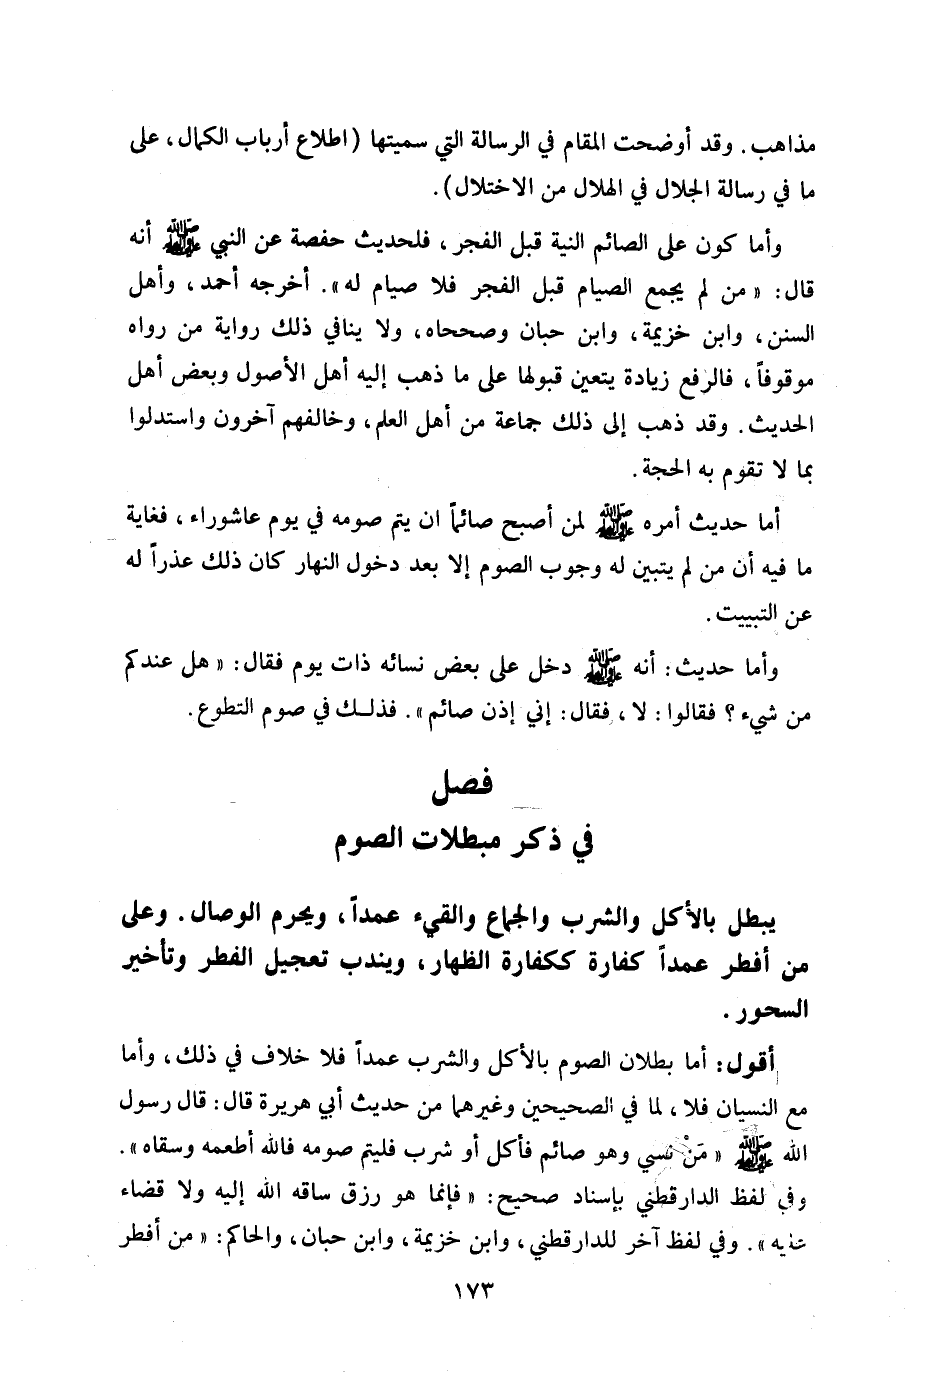 مذاهب. وقد أوضحت المقام في الرسالة التي سميتها (اطلاع أرباب الكمال، على
ما في رسالة الجلال في الهلال من الاختلال).
وأما كون على الصائم النية قبل الفجر، فلحديث حفصة عن النبي ﷺ أنه
قال: «من لم يجمع الصيام قبل الفجر فلا صيام له». أخرجه أحمد، وأهل
السنن، وابن خزيمة، وابن حبان وصححاه، ولا ينافي ذلك رواية من رواه
موقوفاً، فالرفع زيادة يتعين قبولها على ما ذهب إليه أهل الأصول وبعض أهل
الحديث. وقد ذهب إلى ذلك جماعة من أهل العلم، وخالفهم آخرون واستدلوا
بما لا تقوم به الحجة.
أما حديث أمره ﷺ لمن أصبح صائماً ان يتم صومه في يوم عاشوراء، فغاية
ما فيه أن من لم يتبين له وجوب الصوم إلا بعد دخول النهار كان ذلك عذراً له
عن التبييت.
وأما حديث: أنه ﷺ دخل على بعض نسائه ذات يوم فقال: «هل عندكم
من شيء؟ فقالوا: لا، فقال: إني إذن صائم». فذلك في صوم التطوع.
فصل
في ذكر مبطلات الصوم
يبطل بالأكل والشرب والجماع والقيء عمداً، ويحرم الوصال. وعلى
من أفطر عمداً كفارة ككفارة الظهار، ويندب تعجيل الفطر وتأخير
السحور.
أقول: أما بطلان الصوم بالأكل والشرب عمداً فلا خلاف في ذلك، وأما
مع النسيان فلا، لما في الصحيحين وغيرهما من حديث أبي هريرة قال: قال رسول
الله ﷺ «مَنْ نسي وهو صائم فأكل أو شرب فليتم صومه فالله أطعمه وسقاه».
وفي لفظ الدارقطني بإسناد صحيح: «فإنما هو رزق ساقه الله إليه ولا قضاء
عليه». وفي لفظ آخر للدارقطني، وابن خزيمة، وابن حبان، والحاكم: «من أفطر
١٧٣